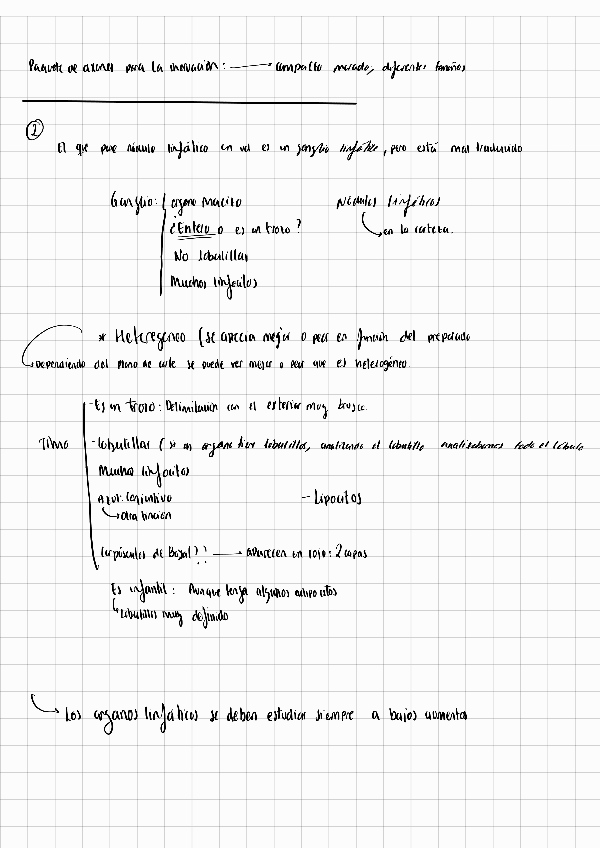 Paquete de axones para la inervación: → compacto morado, diferentes tamaños
②
El que pone nódulo linfático en vd es un ganglio linfático, pero está mal traducido
Ganglio: órgano macizo
¿Entero o es un trozo?
No lobulillas
Muchos linfocitos
Nódulos linfáticos
en la corteza.
* Heterogéneo (se aprecia mejor o peor en función del preparado
Dependiendo del plano de corte se puede ver mejor o peor que es heterogéneo.
Timo
- Es un trozo: Delimitación con el exterior muy brusca.
- Lobulillar (si un órgano tiene lobulillos, analizando el lobulillo analizaremos todo el lóbulo
Muchos linfocitos
Azul: Conjuntivo
otra tinción
- Lipocitos
Corpúsculos de ?? → aparecen en rojo: 2 capas
Es infantil: Aunque tenga algunos adipocitos
Lobulillos muy definido
Los organos linfáticos se deben estudiar siempre a bajos aumentos